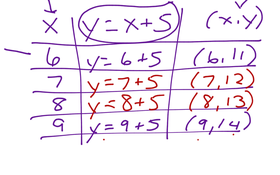 x y=x+5 (x,y)
6 y=6+5 (6,11)
7 y=7+5 (7,12)
8 y=8+5 (8,13)
9 y=9+5 (9,14)